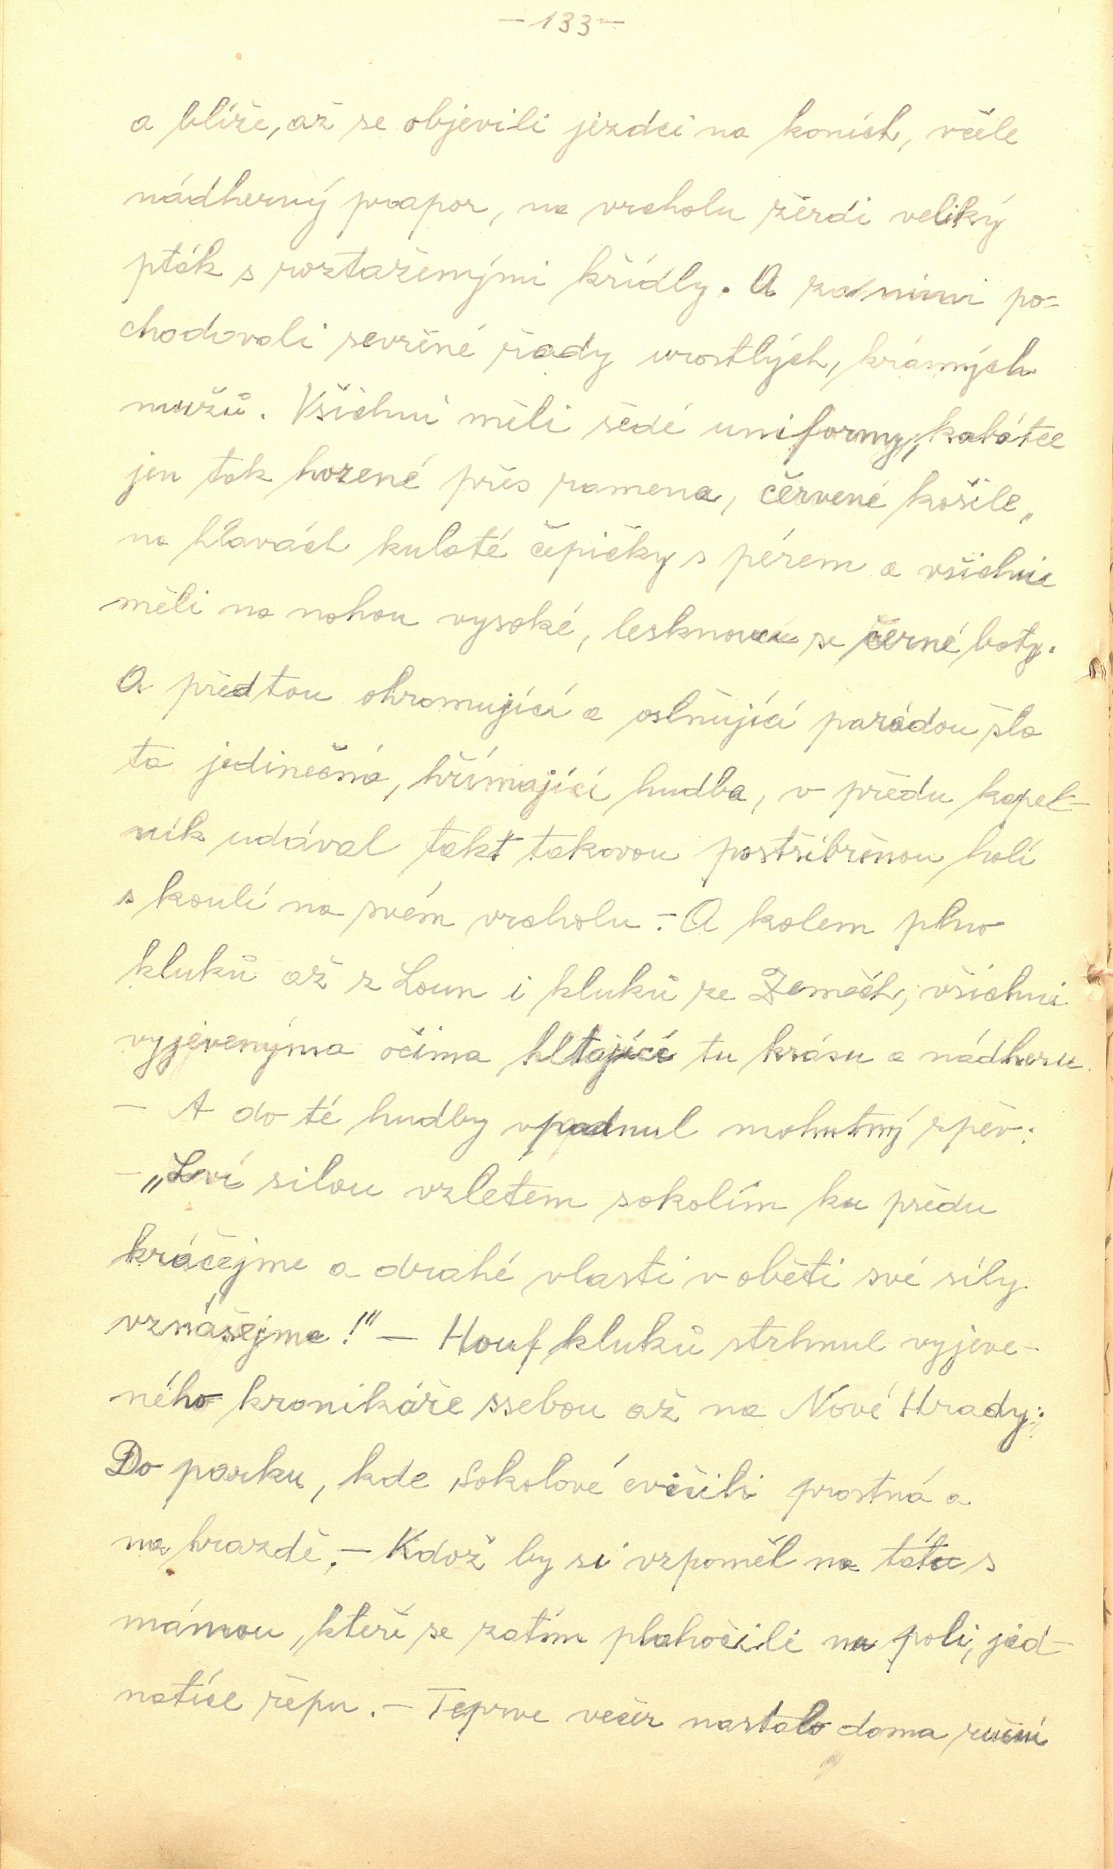 – 133 –
a blíže, až se objevili jezdci na koních, včele
nádherný prapor, na vrcholu žerdi veliký
pták s roztaženými křídly. A za nimi po-
chodovali sevřené řady urostlých, krásných
mužů. Všichni měli šedé uniformy, kabátce
jen tak hozené přes ramena, červené košile,
na hlavách kulaté čepičky s pérem a všichni
měli na nohou vysoké, lesknoucí se černé boty.
A před tou ohromující a oslňující parádou šla
ta jedinečná, hřímající hudba, v předu kapel-
ník udával takt takovou postříbřenou holí
s koulí na svém vrcholu. – A kolem plno
kluků až z Loun i kluků ze Zeměch, všichni
vyjevenýma očima hltající tu krásu a nádheru.
– A do té hudby vpadnul mohutný zpěv:
– „Lví silou vzletem sokolím ku předu
kráčejme a drahé vlasti v oběti své síly
vznášejme!" – Houf kluků strhnul vyjeve-
ného kronikáře ssebou až na Nové Hrady:
Do parku, kde Sokolové cvičili prostná a
na hrazdě. – Kdož by si vzpoměl na tátu s
mámou, kteří se zatím plahočili na poli, jed-
notíce řepu. – Teprve večer nastalo doma ruční